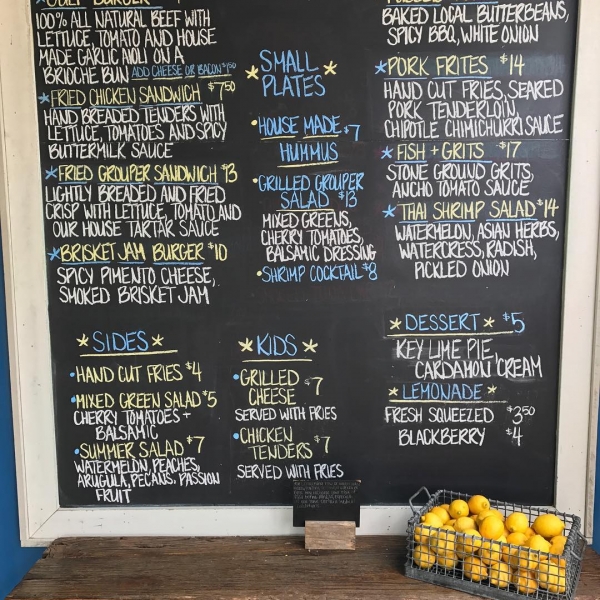 100% ALL NATURAL BEEF WITH
LETTUCE, TOMATO AND HOUSE
MADE GARLIC AIOLI ON A
BRIOCHE BUN ADD CHEESE OR BACON $1.50
FRIED CHICKEN SANDWICH $7.50
HAND BREADED TENDERS WITH
LETTUCE, TOMATOES AND SPICY
BUTTERMILK SAUCE
FRIED GROUPER SANDWICH $13
LIGHTLY BREADED AND FRIED
CRISP WITH LETTUCE, TOMATO, AND
OUR HOUSE TARTAR SAUCE
BRISKET JAM BURGER $10
SPICY PIMENTO CHEESE,
SMOKED BRISKET JAM
SIDES
HAND CUT FRIES $4
MIXED GREEN SALAD $5
CHERRY TOMATOES +
BALSAMIC
SUMMER SALAD $7
WATERMELON, PEACHES,
ARUGULA, PECANS, PASSION
FRUIT
SMALL
PLATES
HOUSE MADE $7
HUMMUS
GRILLED GROUPER
SALAD $13
MIXED GREENS,
CHERRY TOMATOES,
BALSAMIC DRESSING
SHRIMP COCKTAIL $8
KIDS
GRILLED
CHEESE $7
SERVED WITH FRIES
CHICKEN
TENDERS $7
SERVED WITH FRIES
BAKED LOCAL BUTTERBEANS,
SPICY BBQ, WHITE ONION
PORK FRITES $14
HAND CUT FRIES, SEARED
PORK TENDERLOIN,
CHIPOTLE CHIMICHURRI SAUCE
FISH + GRITS $17
STONE GROUND GRITS,
ANCHO TOMATO SAUCE
THAI SHRIMP SALAD $14
WATERMELON, ASIAN HERBS,
WATERCRESS, RADISH,
PICKLED ONION
DESSERT $5
KEY LIME PIE,
CARDAMON CREAM
LEMONADE
FRESH SQUEEZED $3.50
BLACKBERRY $4